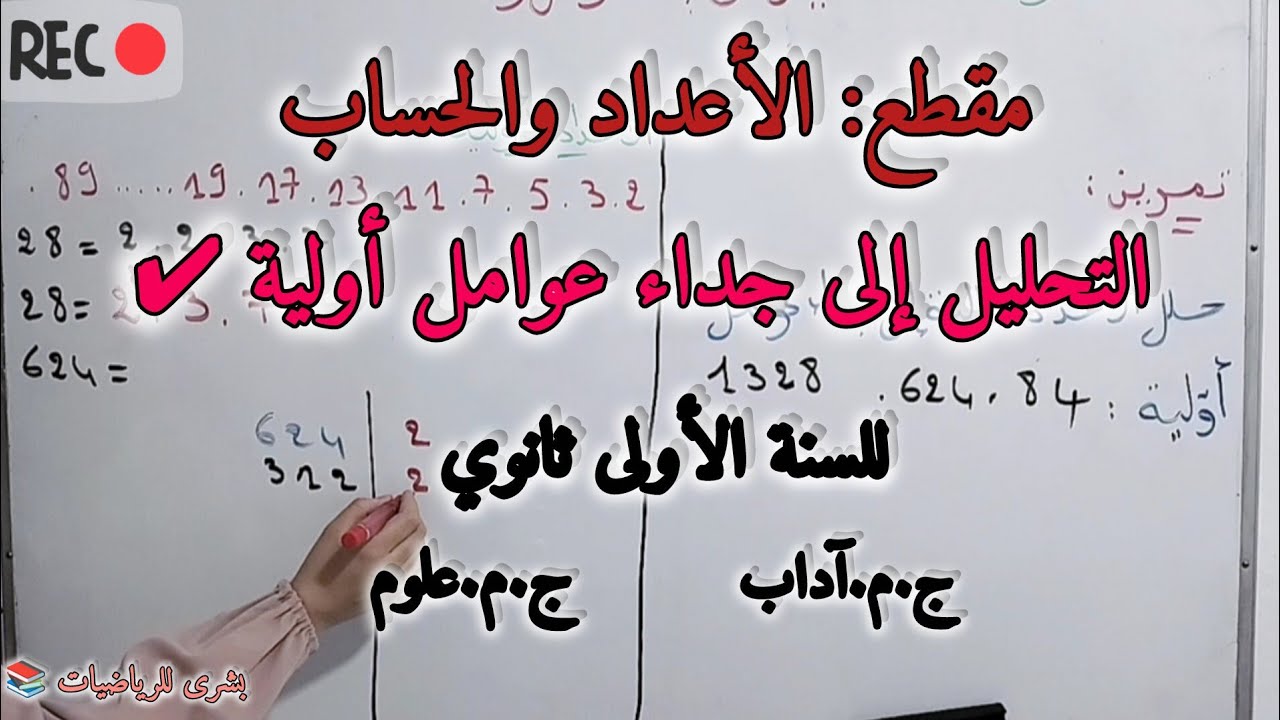 REC
مقطع: الأعداد والحساب
.89.....19.17.13.11.7.5.3.2
تمرين:
28 = 2
التحليل إلى جداء عوامل أولية ✔
28 = 2
حلل
624 =
1328 . 624 . 84
أولية :
624 | 2
312 | 2
للسنة الأولى ثانوي
ج.م.آداب
ج.م.علوم
بشرى للرياضيات 📚